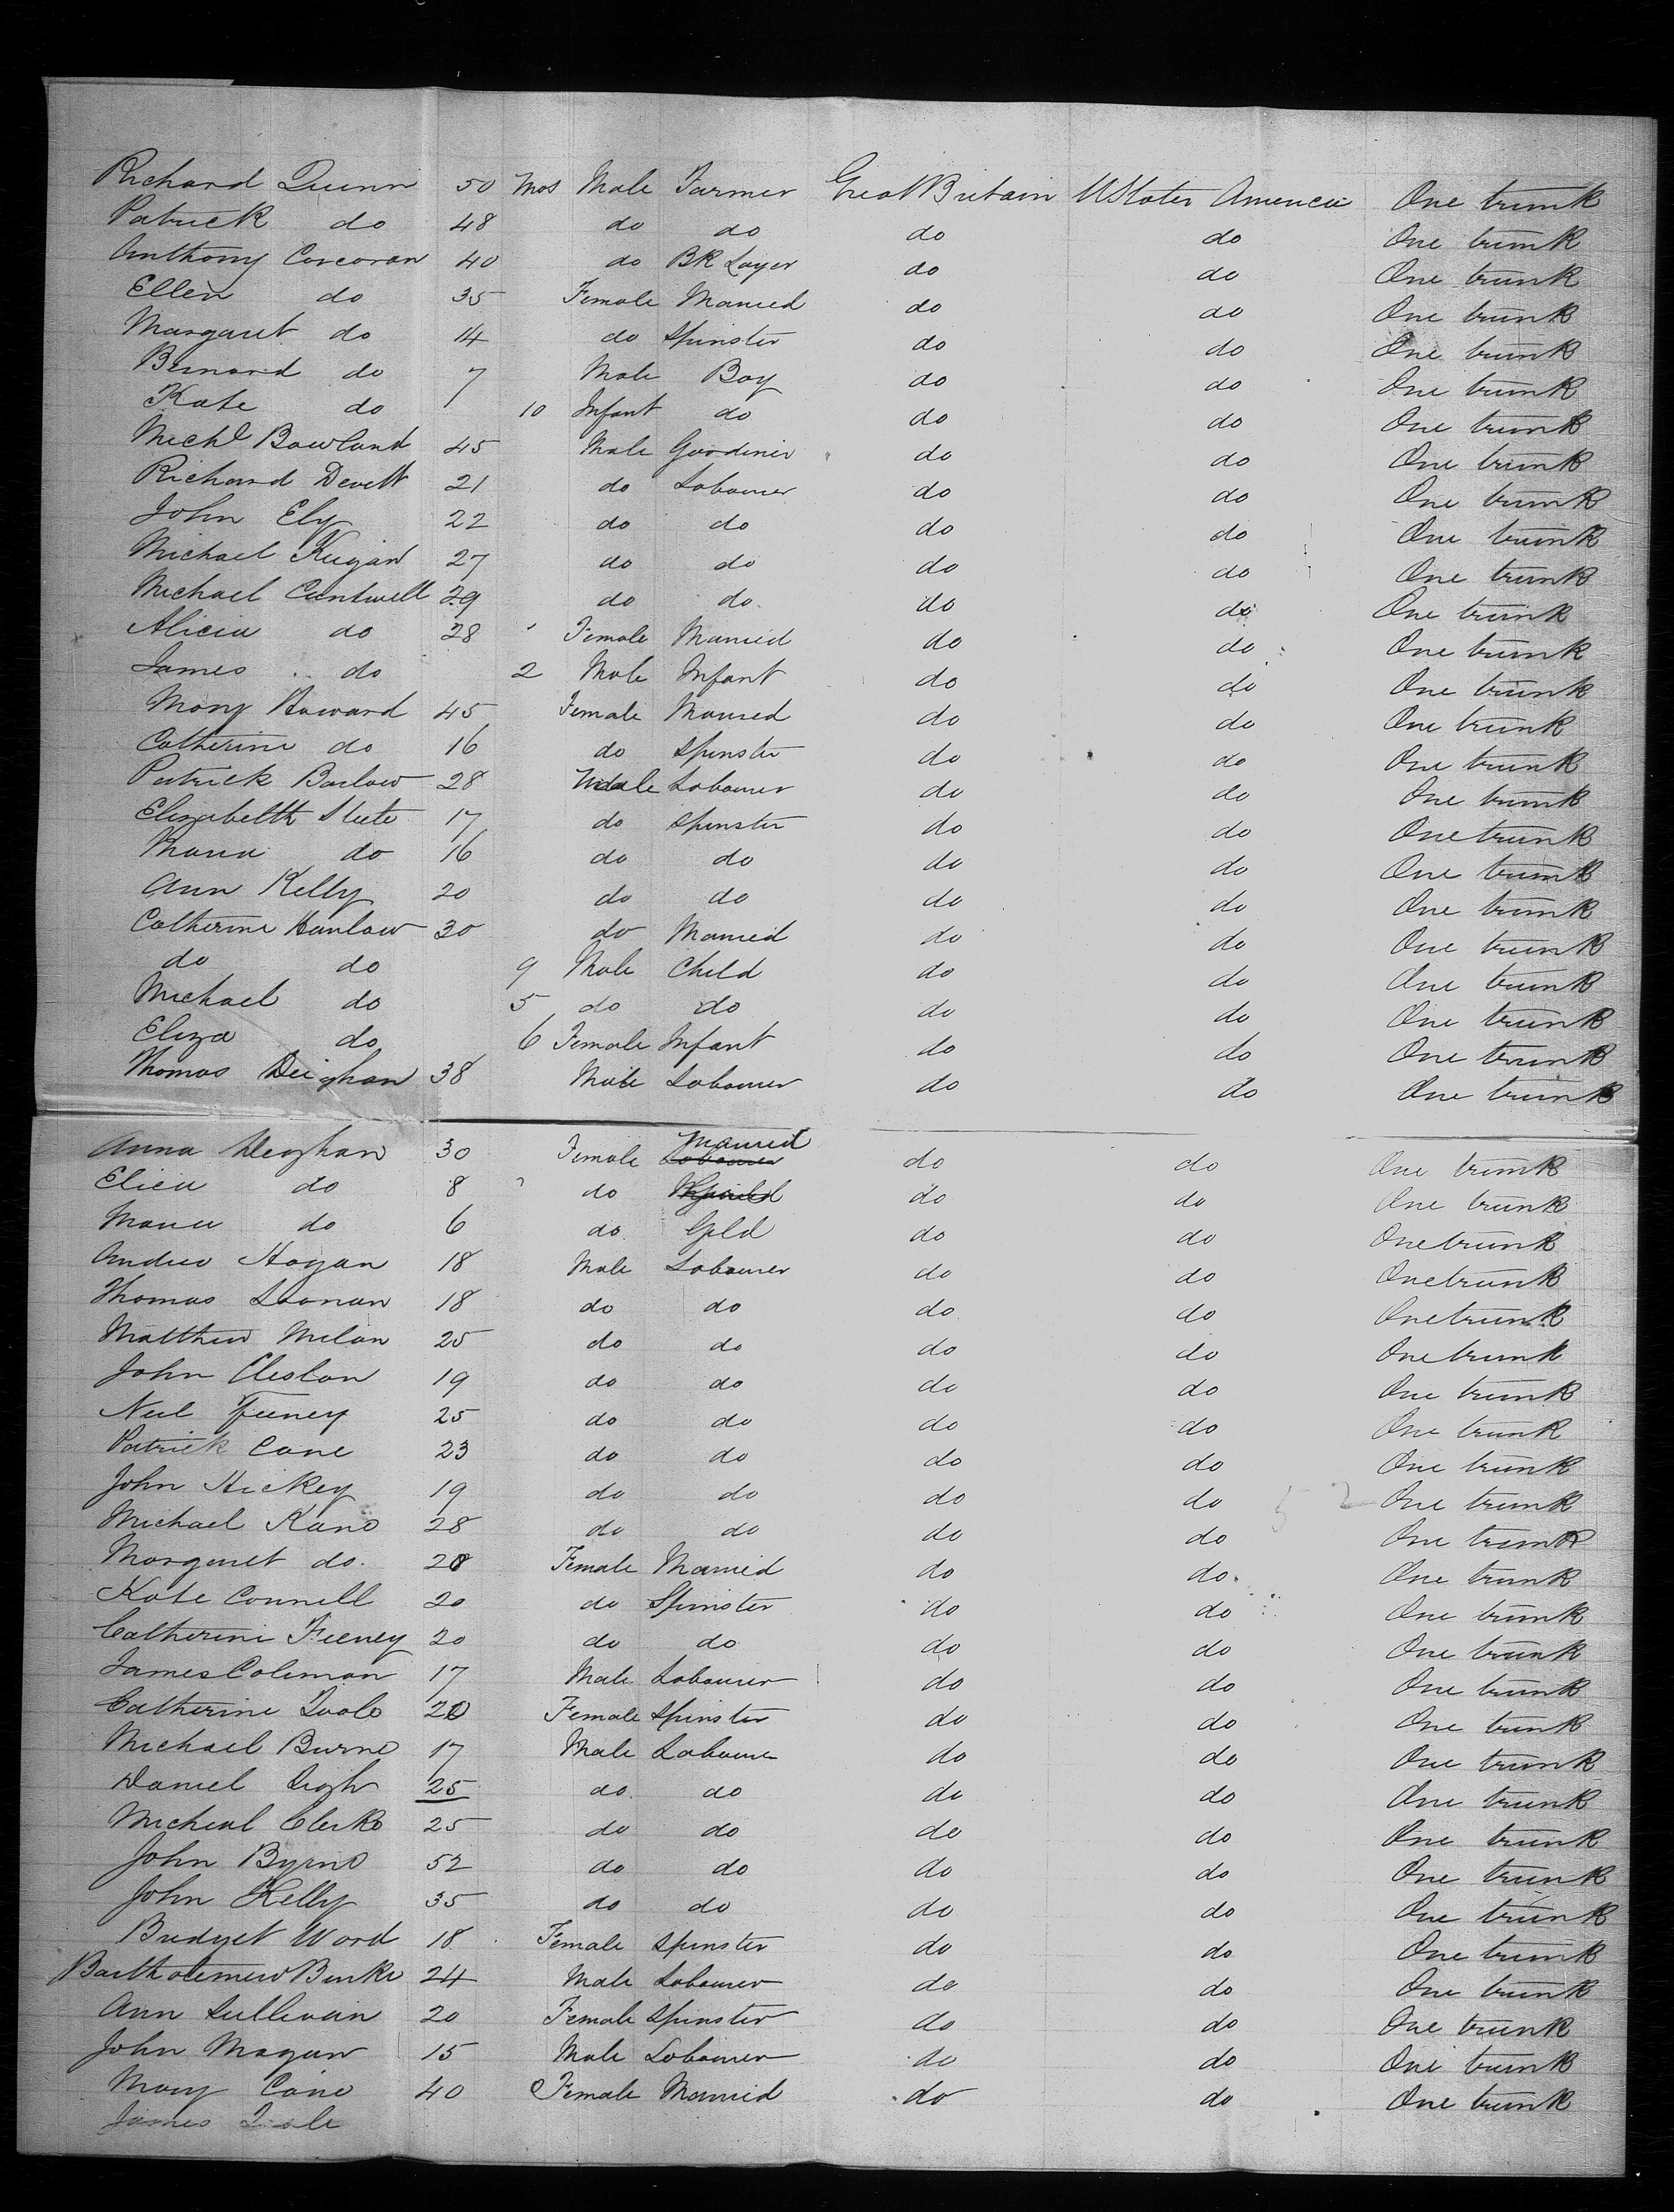 Richard Quinn 50 Mos Male Farmer Great Britain UStates America One trunk
Patrick do 48 do do do do One trunk
Anthony Corcoran 40 do BR Layer do do One trunk
Ellen do 35 Female Married do do One trunk
Margaret do 14 do Spinster do do One trunk
Bernard do 7 Male Boy do do One trunk
Kate do 10 Infant do do do One trunk
Michl Bowland 45 Male Gardinir do do One trunk
Richard Devett 21 do Labourer do do One trunk
John Ely 22 do do do do One trunk
Michael Keegan 27 do do do do One trunk
Michael Cantwell 29 do do do do One trunk
Alicia do 28 Female Married do do One trunk
James do 2 Male Infant do do One trunk
Mary Howard 45 Female Married do do One trunk
Catherine do 16 do Spinster do do One trunk
Patrick Barlow 28 Male Labourer do do One trunk
Elizabeth 17 do Spinster do do One trunk
Maria do 16 do do do do One trunk
Ann Kelly 20 do do do do One trunk
Catherine Hanlow 30 do Married do do One trunk
do do 9 Male Child do do One trunk
Michael do 5 do do do do One trunk
Eliza do 6 Female Infant do do One trunk
Thomas Deighan 38 Male Labourer do do One trunk
Anna Deighan 30 Female Married do do One trunk
Eliza do 8 do do do One trunk
Maria do 6 do do do One trunk
Andrew Hogan 18 Male Labourer do do One trunk
Thomas Loonan 18 do do do do One trunk
Matthew Milan 25 do do do do One trunk
John 19 do do do do One trunk
Neil Feeney 25 do do do do One trunk
Patrick Cane 23 do do do do One trunk
John Hickey 19 do do do do 52 One trunk
Michael Kane 28 do do do do One trunk
Margaret do 28 Female Married do do One trunk
Kate Connell 20 do Spinster do do One trunk
Catherine Feeney 20 do do do do One trunk
James Coleman 17 Male Labourer do do One trunk
Catherine Toole 20 Female Spinster do do One trunk
Michael Burne 17 Male Labourer do do One trunk
Daniel 25 do do do do One trunk
Micheal Clerke 25 do do do do One trunk
John Byrne 52 do do do do One trunk
John Kelly 35 do do do do One trunk
Bridget Ward 18 Female Spinster do do One trunk
Bartholemew Burke 24 Male Labourer do do One trunk
Ann Sullivan 20 Female Spinster do do One trunk
John Magan 15 Male Labourer do do One trunk
Mary Cane 40 Female Married do do One trunk
James